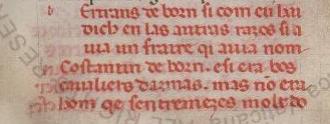 b
Ertrans de born si com eu lau
dich en las autras razos si a
uia un fraire qi auia nom
Costantin de born. e si era bos
caualiers darmas. mas nō era
hom qe sen trameses molt do